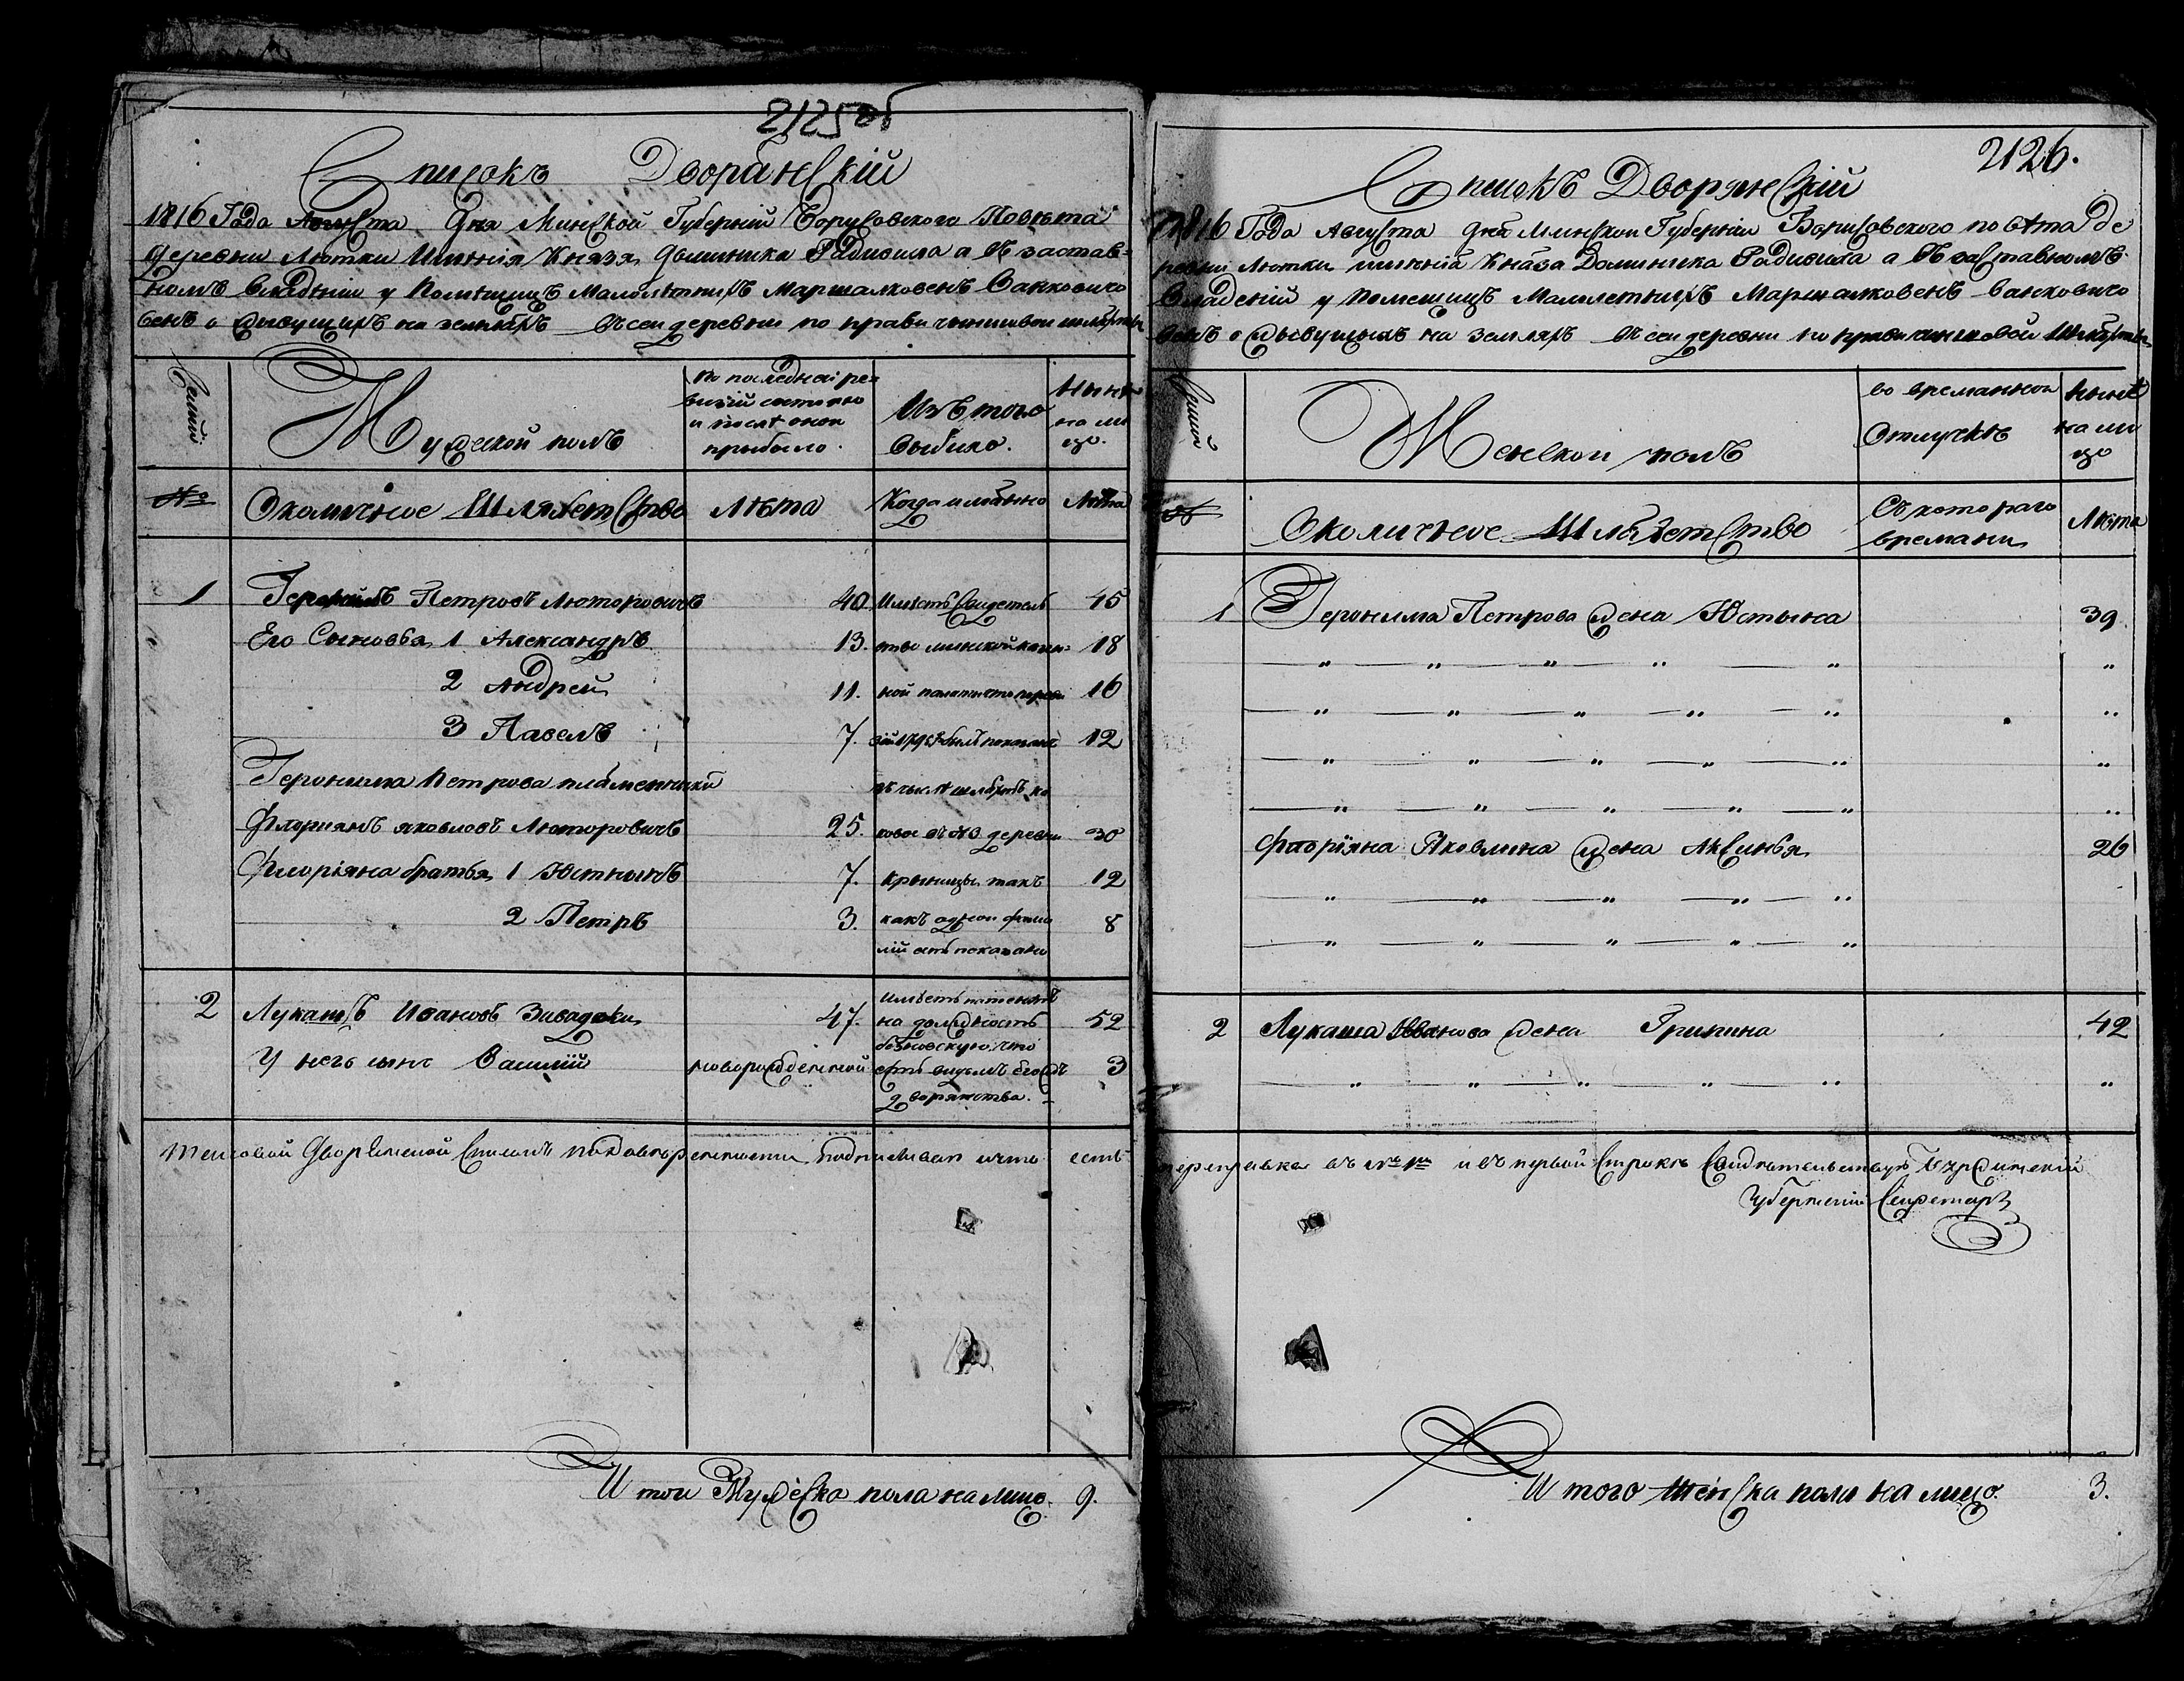 2125об
Списокъ Дворанскій
1816 Года Августа Дня Минской Губерніи Борисовского Повѣта
деревни Лютки Имѣнія Князя Доминика Радивила а въ застав-
номъ владѣніи у Помѣщицъ Малолѣтнихъ Маршалковенъ Ванковичо
венъ о жывущихъ на земляхъ въ сей деревни по праву чыншовой шляхты
Семіи
Мужеской полъ
по последней ре-
визіи состояло
и послѣ оной
прыбыло.
Изъ того
выбыло.
Нынѣ
на ли
цо.
№
Околичное Шляхетство
Лѣта
Когда имянно
Лѣта
1 Геронимъ Петровъ Люторовичъ 40 Имѣетъ Свидетель 45
Его Сыновья 1 Александръ 13. ство минской казен- 18
2 Андрей 11. ной палаты что 16
3 Павелъ 7. былъ показанъ 12
Геронима Петрова племенники въ числѣ шляхты
Флориянъ яковлевъ Люторовичъ 25. деревни 30
Флоріяна братья 1 Юстынъ 7. Крыницы такъ 12
2 Петръ 3. какъ одной фами 8
лій есть показаны
2 Лукашъ Ивановъ Завадски 47. имѣетъ патентъ на должность 52
У него сынъ Василій новорожденной 3
дворянства.
Таковой Дворянской Списокъ подписывая что есть
Итого Мужеска пола на лицо. 9.
2126.
Списокъ Дворянскій
1816 Года Августа дня Минской Губерніи Борисовского повѣта де
ревни Лютки имѣнія Князя Доминика Радивила а въ заставномъ
Владеніи у Помещицъ Малолетнихъ Маршалковенъ Ванковичо
венъ о жывущихъ на земляхъ въ сей деревни по праву чиншовой Шляхты
Семіи
Женской полъ
во временной
Отлучкѣ
Нынѣ
на ли
цо
№
Околичное Шляхетство
Съ котораго
времани
Лѣта
1 Геронима Петрова жена Юстына 39
" " " " " "
" " " " " "
" " " " " "
" " " " " "
Флоріяна Яковлева жена Аксинья 26
" " " " "
" " " " "
2 Лукаша Иванова жена Грипина 42
" " " " " "
переправка въ и въ первой Строкѣ Свидѣтельствую
Губернскій Секретарь
Итого Женска пола на лицо. 3.